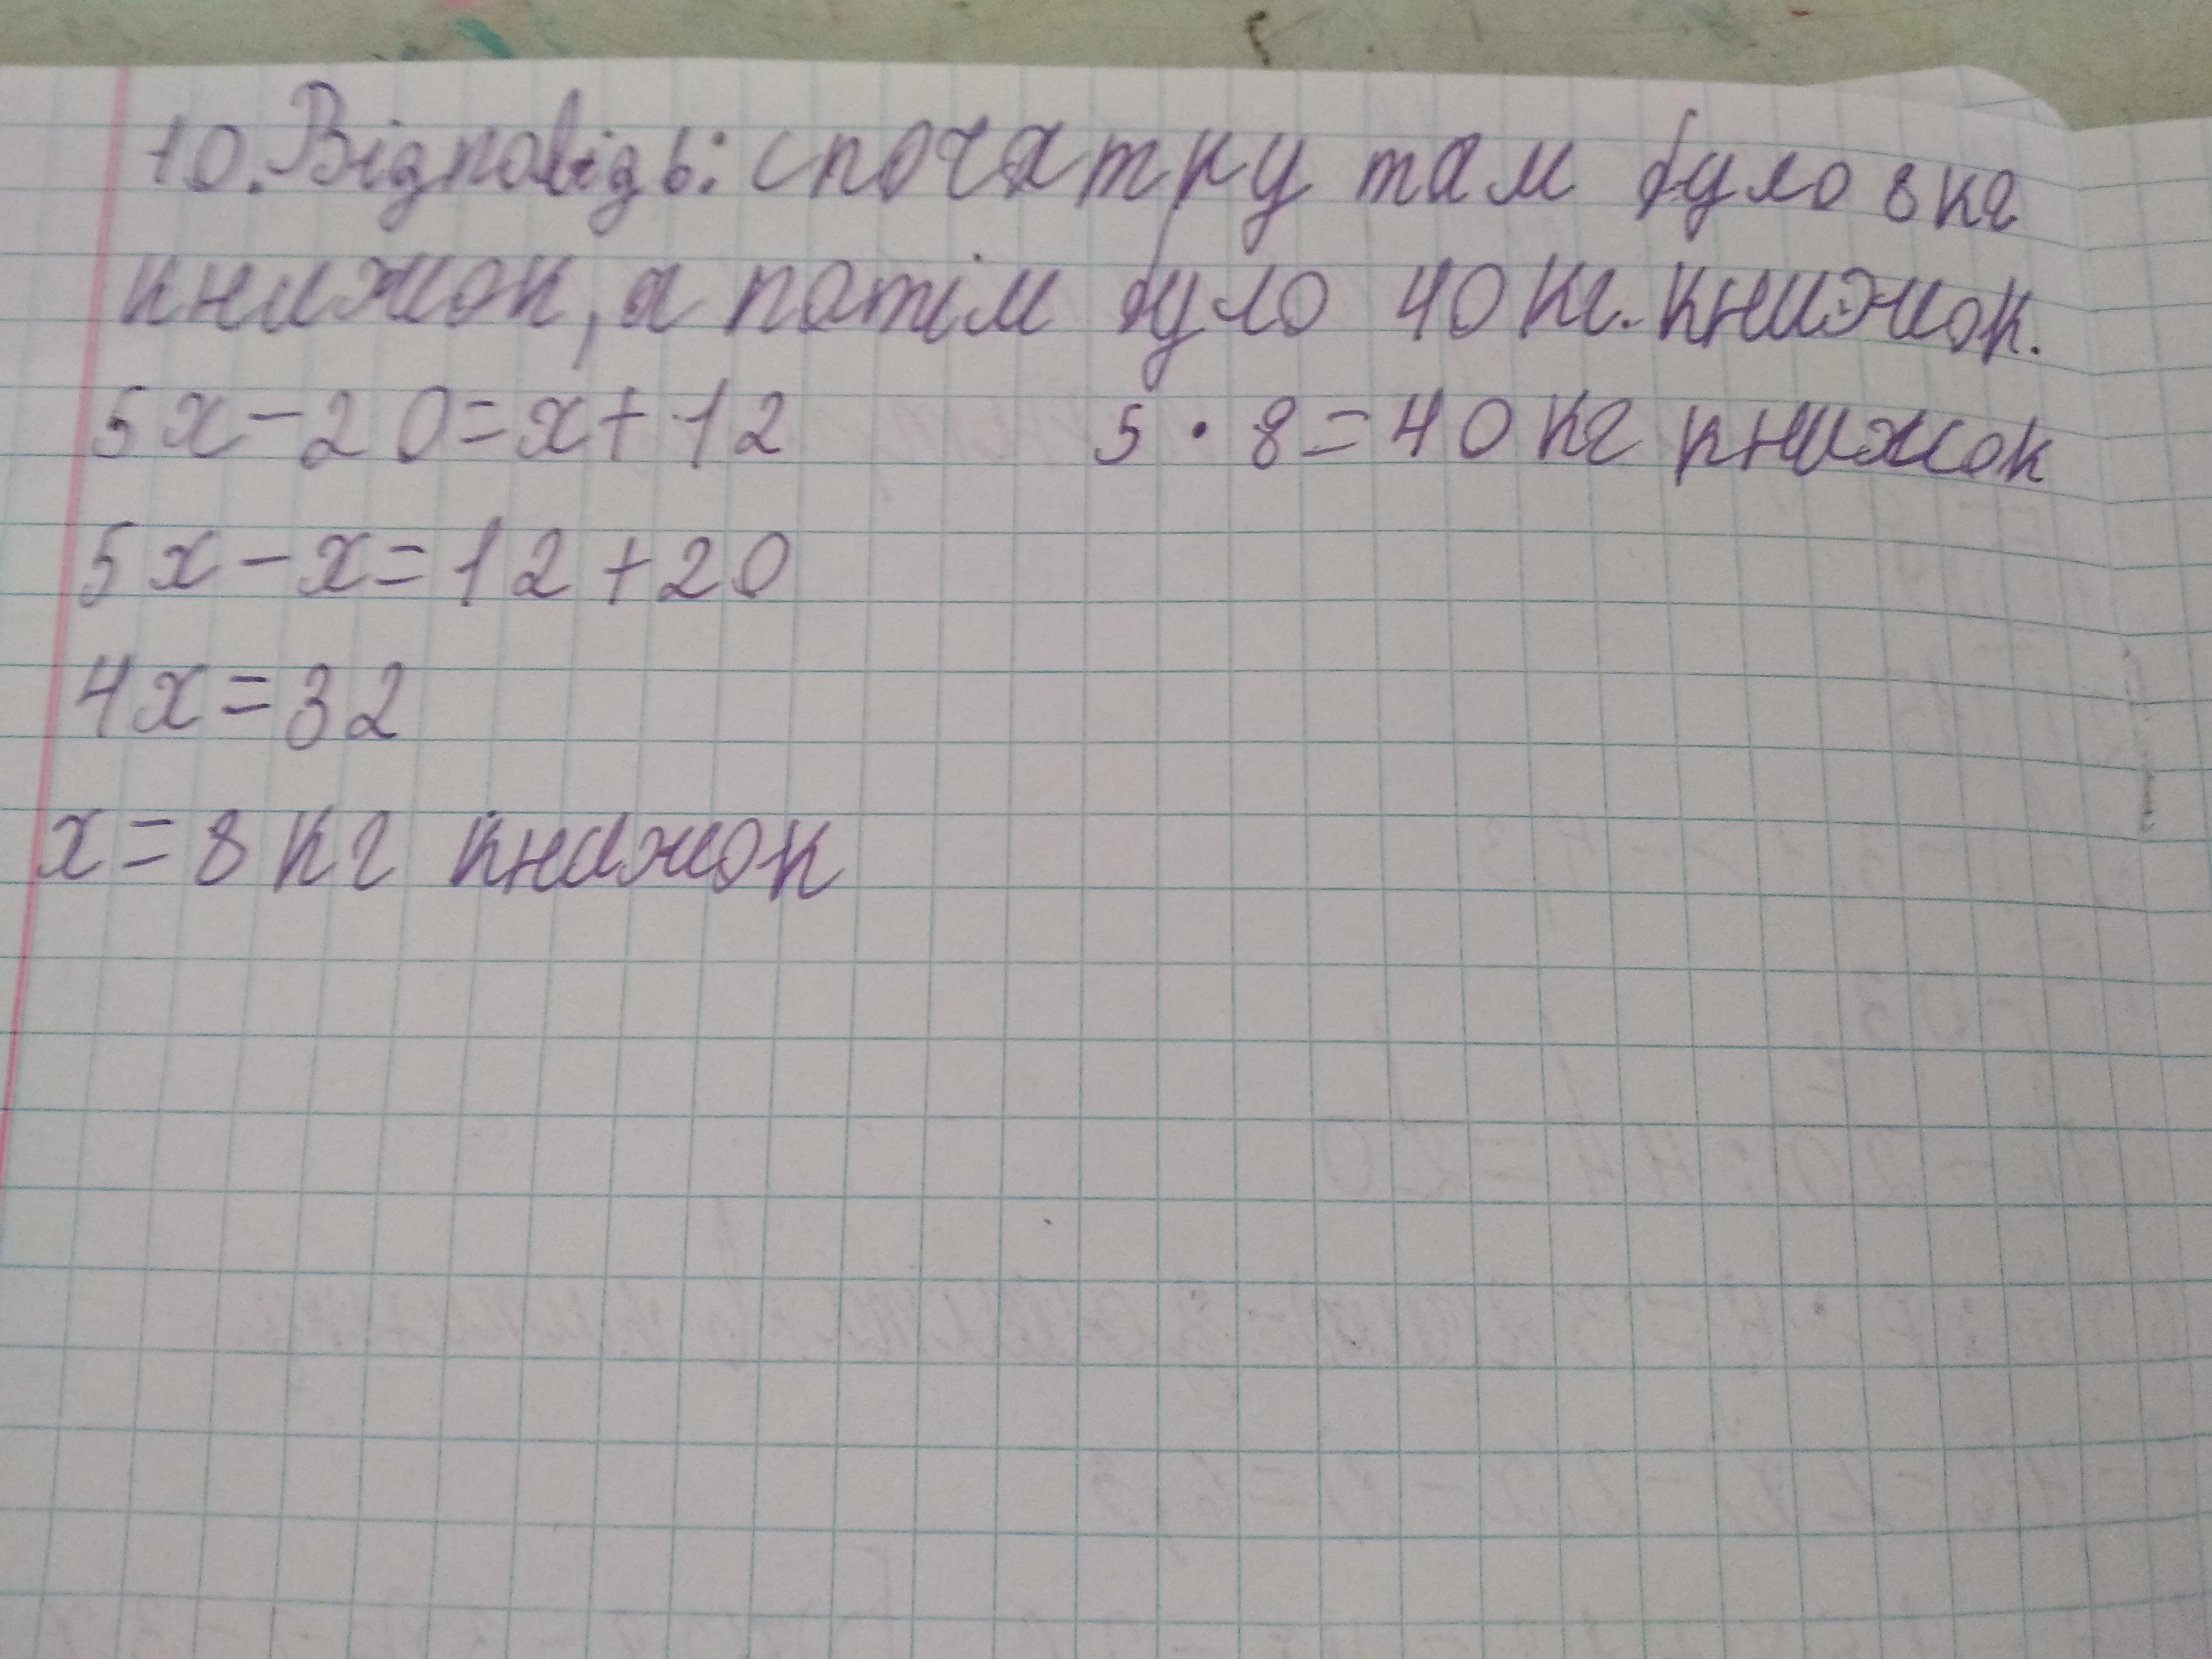 10. Відповідь: спочатку там було 8 кг
книжок, а потім було 40 кг. книжок.
5x-20=x+12
5·8=40 кг книжок
5x-x=12+20
4x=32
x=8 кг книжок